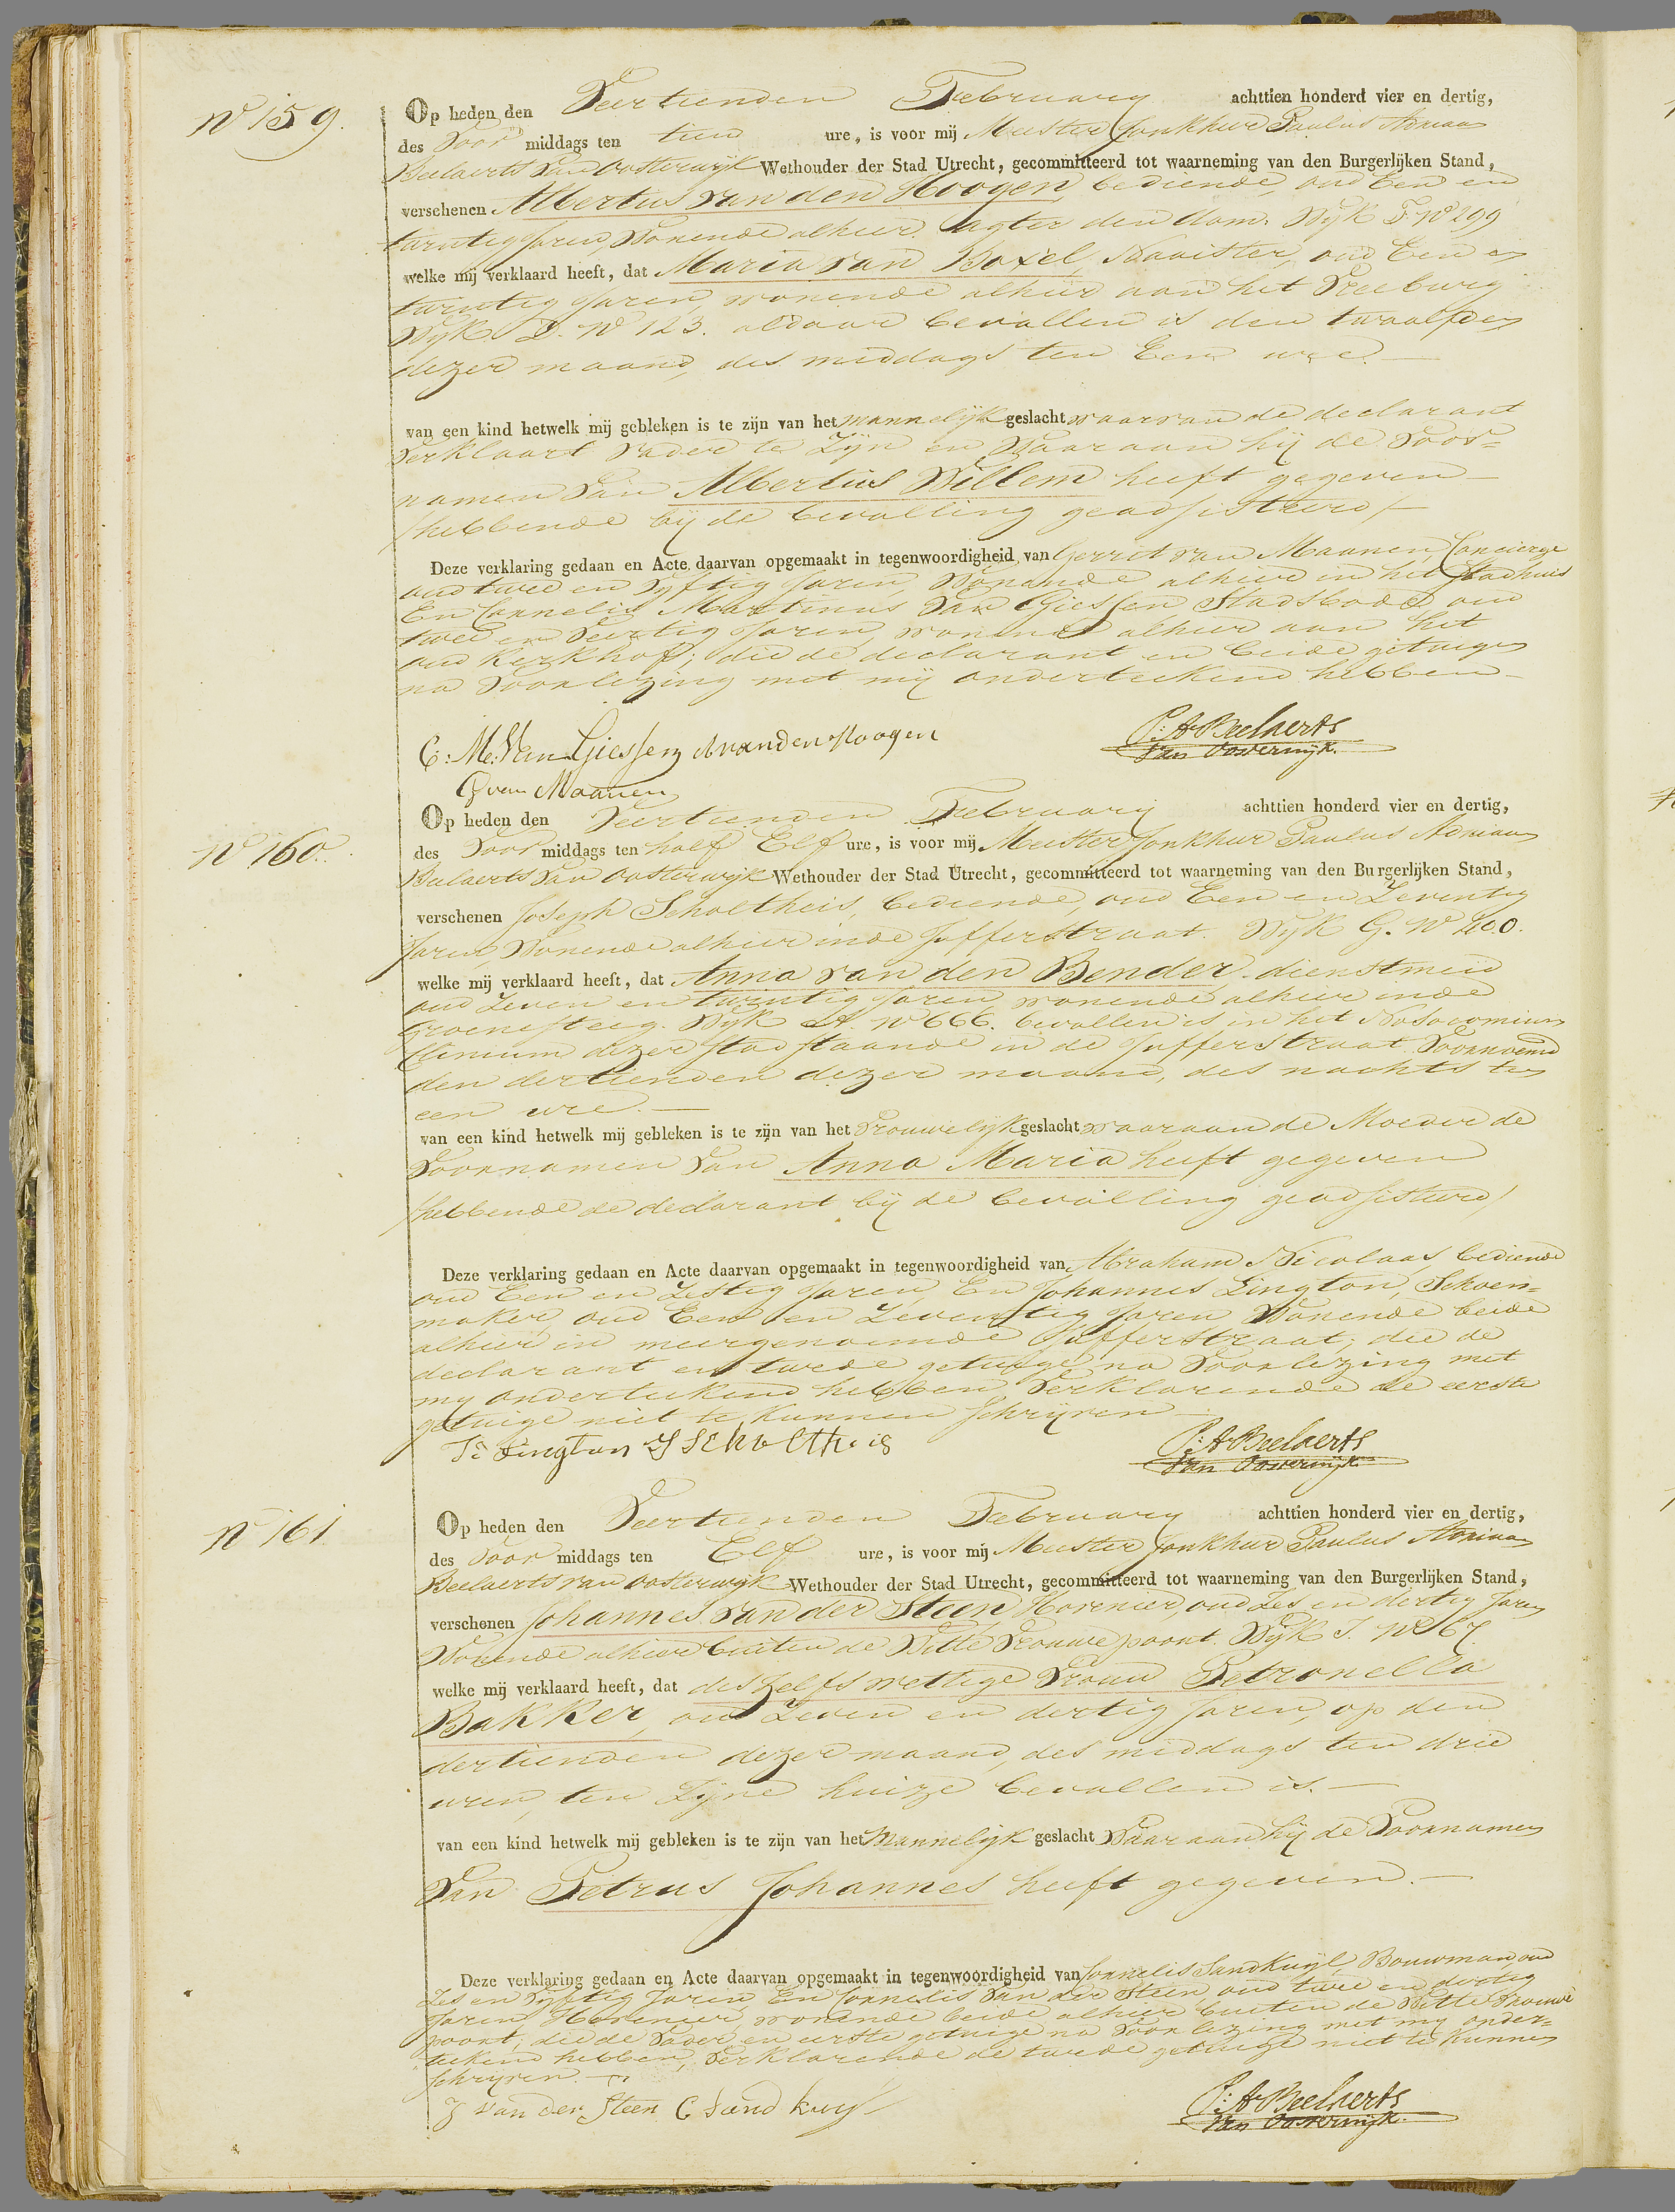 No 159.
Op heden den Veertienden February achttien honderd vier en dertig,
des Voor middags ten tien ure, is voor mij Meester Jonkheer Paulus Adriaan
Beelaerts van Oosterwijk Wethouder der Stad Utrecht, gecommitteerd tot waarneming van den Burgerlijken Stand,
verschenen Albertus van den Hoogen, bediende oud Een en
twintig Jaren, Wonende alhier agter den dom. Wijk F. No 299
welke mij verklaard heeft, dat Maria van Boxel, Naaister, oud Een en
twintig Jaren, wonende alhier aan het Vreeburg
Wijk D. No 123. aldaar bevallen is den twaalfden
dezer maand, des middags ten Een ure.
van een kind hetwelk mij gebleken is te zijn van het mannelijk geslacht waarvan de declarant
Verklaart Vader te Zijn en Waaraan hij de Voor=
namen Van Albertus Willem heeft gegeven
/hebbende bij de bevalling geadsisteerd/
Deze verklaring gedaan en Acte daarvan opgemaakt in tegenwoordigheid van Gerrit van Maanen, Concierge
oud twee en Vijftig Jaren, Wonende alhier in het Stadhuis
En Cornelis Martinus Van Giessen Stadsbode, oud
twee en Veertig Jaren, wonende alhier aan het
oud Kerkhof; die de declarant en beide getuigen
na Voorlezing met mij onderteekend hebben
C: M: Van Giessen A vanden Hoogen P: A Beelaerts
G van Maanen van Oosterwijk.
No 160.
Op heden den Veertienden February achttien honderd vier en dertig,
des Voor middags ten half Elf ure, is voor mij Meester Jonkheer Paulus Adriaan
Beelaerts van Oosterwijk Wethouder der Stad Utrecht, gecommitteerd tot waarneming van den Burgerlijken Stand,
verschenen Joseph Scholtheis, bediende, oud Een en Zeventig
Jaren, Wonende alhier inde Jufferstraat. Wijk G. No 400.
welke mij verklaard heeft, dat Anna van den Bender, dienstmeid
oud Zeven en twintig Jaren, wonende alhier inde
Groenesteeg. Wijk A. No 666. bevallen is in het Nosocomium
Clinium dezer stad staande in de Jufferstraat Voornoemd
den dertienden dezer maand, des nachts ten
een ure.
van een kind hetwelk mij gebleken is te zijn van het Vrouwelijk geslacht waaraan de Moeder de
Voornamen Van Anna Maria heeft gegeven
/hebbende de declarant bij de bevalling geadsisteerd/
Deze verklaring gedaan en Acte daarvan opgemaakt in tegenwoordigheid van Abraham Nicolaas, bediende
oud Een en Zestig Jaren, En Johannes Lington, Schoen=
maker, oud Een en Zeventig Jaren Wonende beide
alhier in meergenoemde Jufferstraat; die de
declarant en tweede getuige na Voorlezing met
mij onderteekend hebben, Verklarende de eerste
getuige niet te kunnen Schrijven
Js Lington J Scholtheis P: A Beelaerts
van Oosterwijk.
No 161.
Op heden den Veertienden February achttien honderd vier en dertig,
des Voor middags ten Elf ure, is voor mij Meester Jonkheer Paulus Adriaan
Beelaerts van Oosterwijk Wethouder der Stad Utrecht, gecommitteerd tot waarneming van den Burgerlijken Stand,
verschenen Johannes van der Steen, Hovenier, oud Zes en dertig Jaren
Wonende alhier buiten de Witte Vrouwe poort. Wijk I. No 67.
welke mij verklaard heeft, dat deszelfs wettige Vrouw Petronella
Bakker, oud Zeven en dertig Jaren, op den
dertienden dezer maand, des middags ten drie
uren, ten Zijne huize bevallen is.
van een kind hetwelk mij gebleken is te zijn van het Mannelijk geslacht Waaraan hij de Voornamen
Van Petrus Johannes heeft gegeven.
Deze verklaring gedaan en Acte daarvan opgemaakt in tegenwoordigheid van Cornelis Sandkuijl, Bouwman, oud
Zes en Vijftig Jaren, En Cornelis Van der Steen, oud twee en dertig
Jaren, Hovenier, wonende beide alhier buiten de Witte Vrouwe
poort; die de Vader en eerste getuige na Voorlezing met mij onder=
teekend hebben, Verklarende de tweede getuige niet te kunnen
schrijven.
J van der Steen C Sand kuyl P: A Beelaerts
van Oosterwijk.